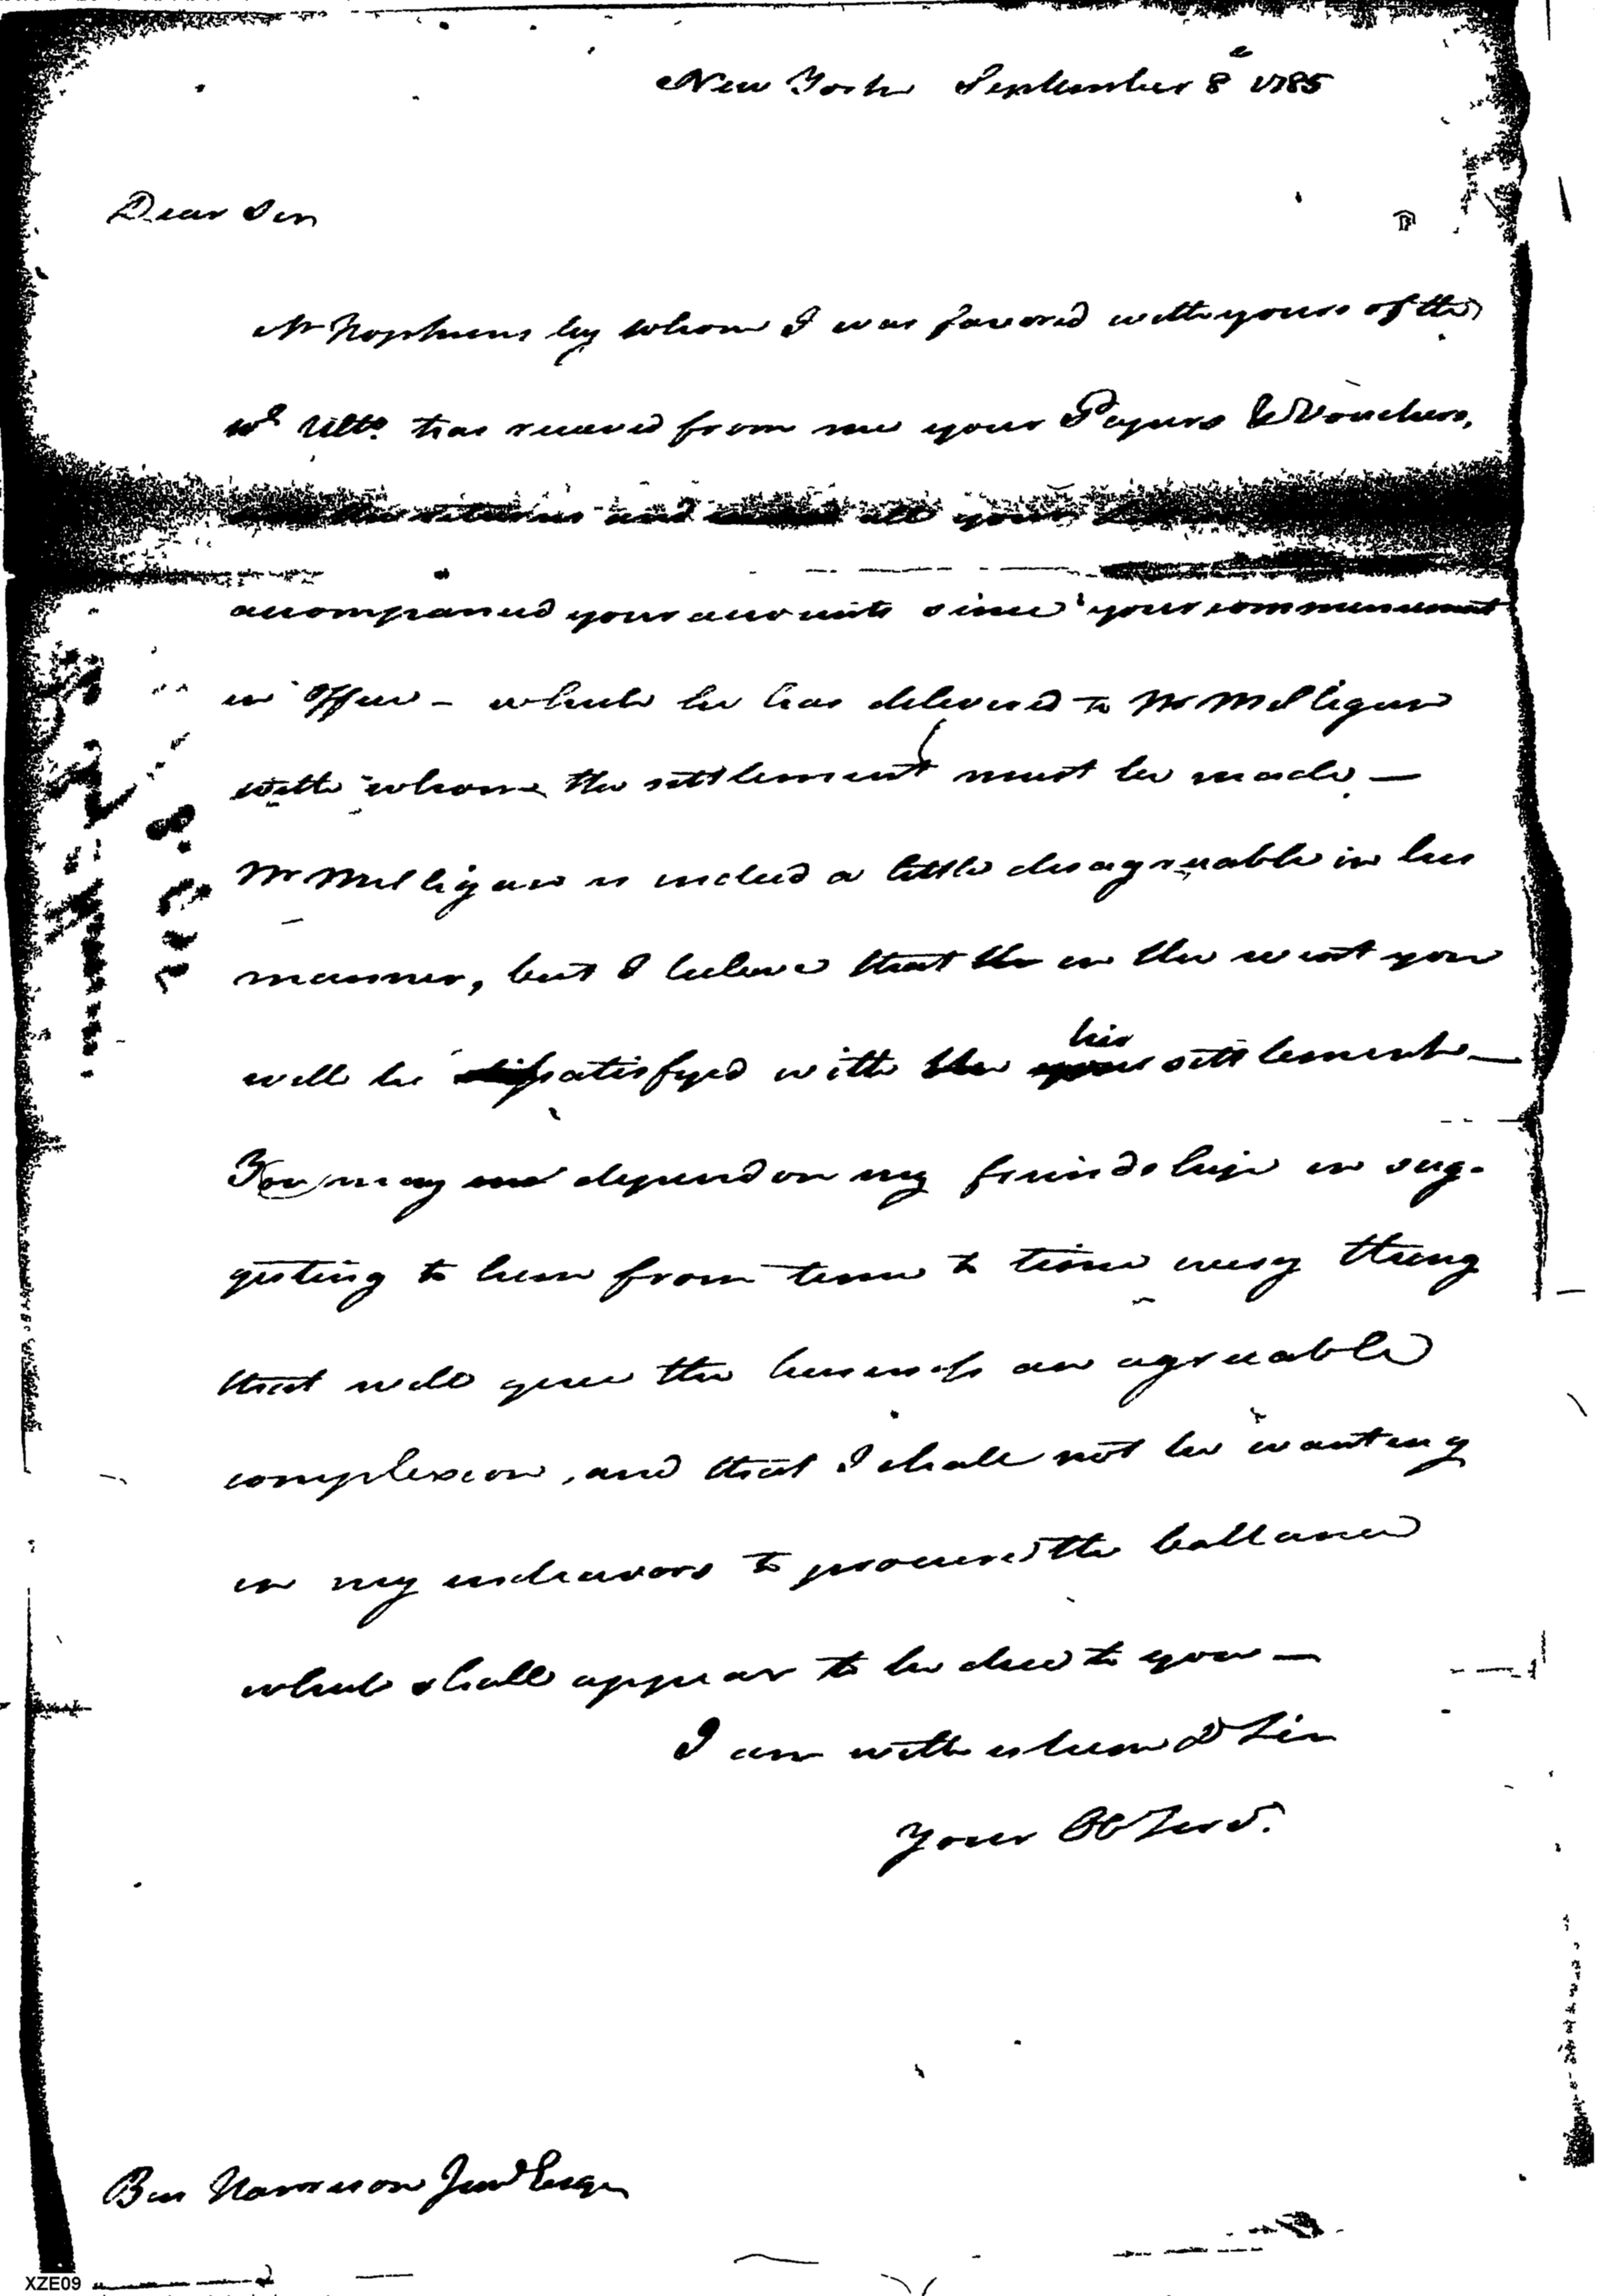 New York September 8th 1785
Dear Sir
Mr Hopkins by whom I was favored with yours of the
Ulto. has received from me your Papers & Vouchers,
the returns and all your
accompanied your accounts since your commencement
in Office – which he has delivered to Mr Milligan
with whom the settlement must be made. —
Mr Milligan is indeed a little disagreeable in his
manner, but I believe that the in the event you
will be satisfyed with the his settlement —
You may depend on my friendship in sug-
gesting to him from time to time every thing
that will give the business an agreeable
complexion, and that I shall not be wanting
in my endeavors to procure the ballance
which shall appear to be due to you —
I am with esteem D Sir
Your Ob Servt.
Ben Harrison Junr Esqr
XZE09